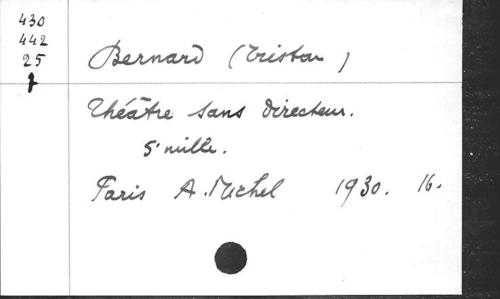 430
442
25
Bernard (Tristan)
Théâtre sans directeur.
5e mille.
Paris A. Michel 1930. 16.